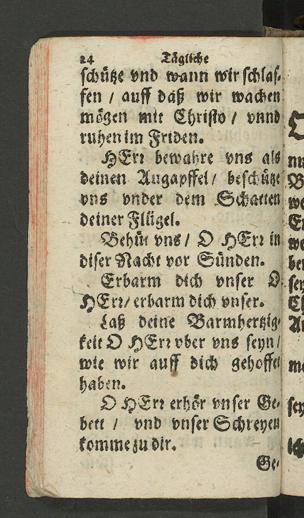 24 Tägliche
schütze vnd wann wir schlaf-
fen / auff daß wir wachen
mögen mit Christo / vnnd
ruhen im Friden.
HErr bewahre vns als
deinen Augapffel / beschütze
vns vnder dem Schatten
deiner Flügel.
Behüt vns / O HErr in
diser Nacht vor Sünden.
Erbarm dich vnser O
HErr / erbarm dich vnser.
Laß deine Barmhertzig-
keit O HErr vber vns seyn /
wie wir auff dich gehoffet
haben.
O HErr erhör vnser Ge-
bett / vnd vnser Schreyen
komme zu dir.
Ge-